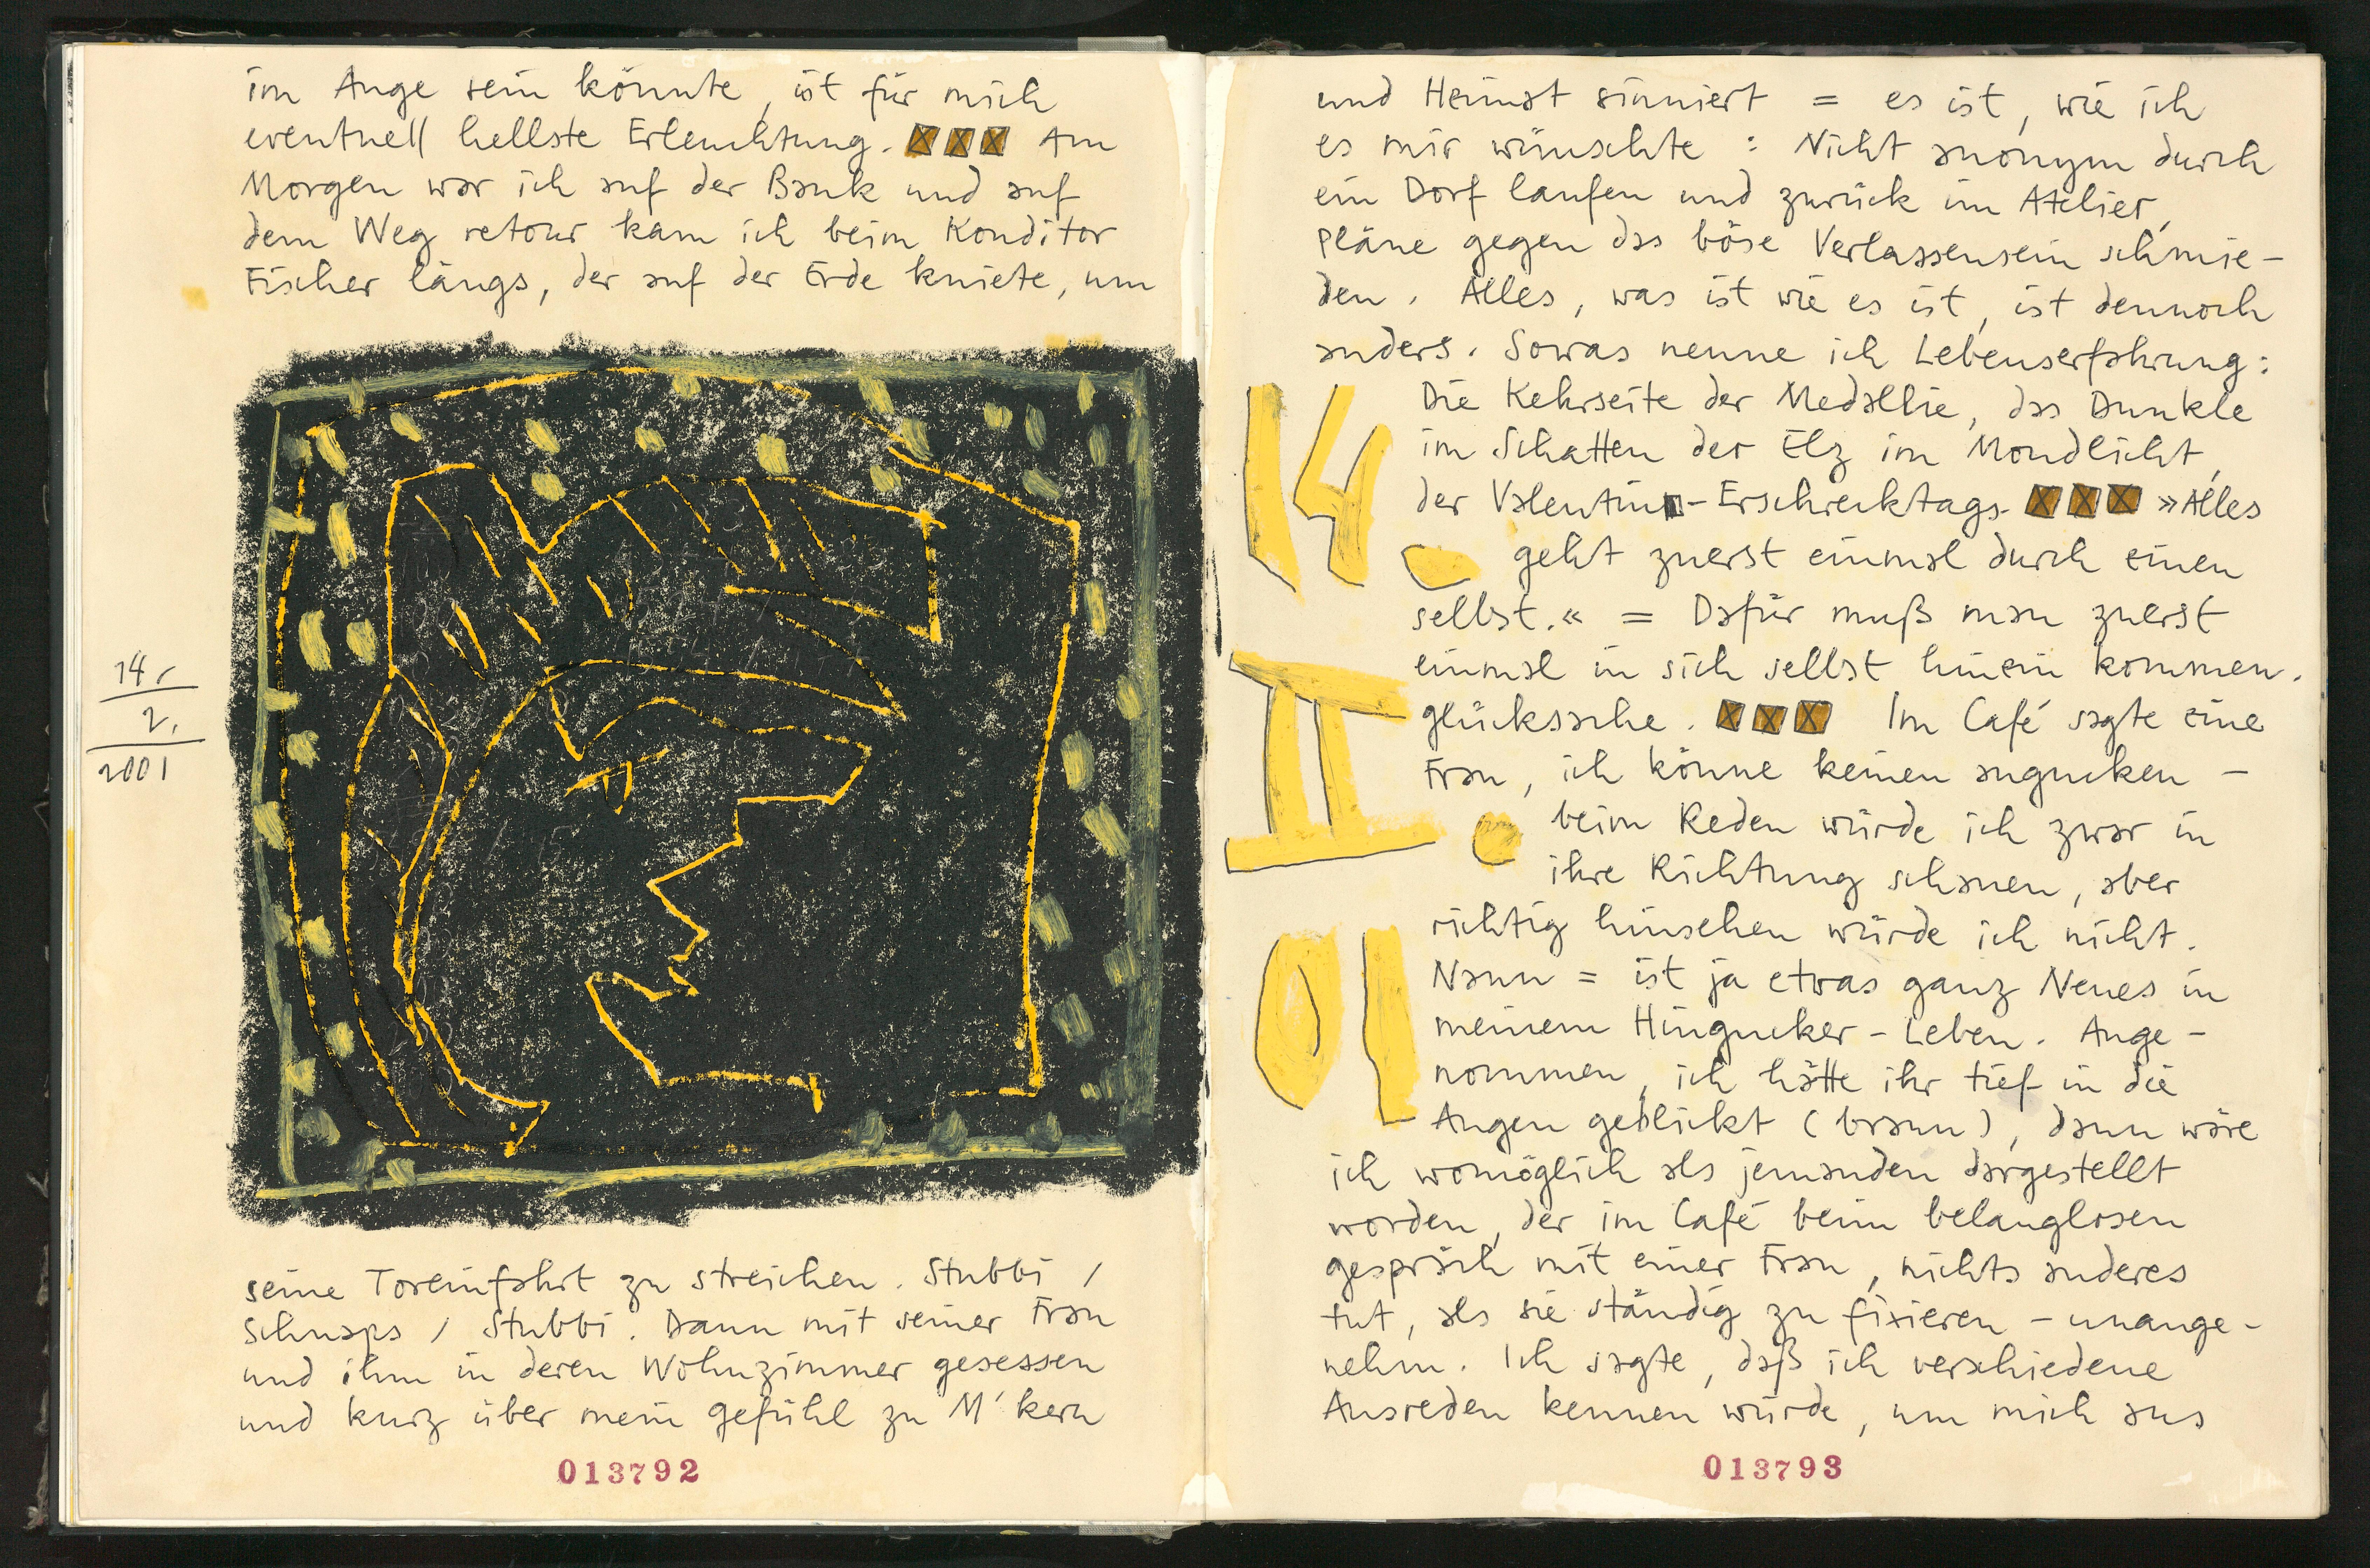 im Auge sein könnte, ist für mich
eventuell hellste Erleuchtung. Am
Morgen war ich auf der Bank und auf
dem Weg retour kam ich beim Konditor
Fischer längs, der auf der Erde kniete, um
14.
2.
2001
seine Toreinfahrt zu streichen. Stubbi /
Schnaps / Stubbi. Dann mit seiner Frau
und ihm in deren Wohnzimmer gesessen
und kurz über mein Gefühl zu M'kern
013792
und Heimat sinniert = es ist, wie ich
es mir wünschte : Nicht anonym durch
ein Dorf laufen und zurück im Atelier,
Pläne gegen das böse Verlassensein schmie-
den. Alles, was ist wie es ist, ist dennoch
anders. Sowas nenne ich Lebenserfahrung:
Die Kehrseite der Medallie, das Dunkle
im Schatten der Elz im Mondlicht,
der Valentin-Erschrecktags. »Alles
geht zuerst einmal durch einen
selbst.« = Dafür muß man zuerst
einmal in sich selbst hinein kommen.
Glückssache. Im Café sagte eine
Frau, ich könne keinen angucken -
beim Reden würde ich zwar in
ihre Richtung schauen, aber
richtig hinsehen würde ich nicht.
Nann = ist ja etwas ganz Neues in
meinem Hingucker-Leben. Ange-
nommen, ich hätte ihr tief in die
Augen geblickt (braun), dann wäre
ich womöglich als jemanden dargestellt
worden, der im Café beim belanglosen
Gespräch mit einer Frau, nichts anderes
tut, als sie ständig zu fixieren - unange-
nehm. Ich sagte, daß ich verschiedene
Ausreden kennen würde, um mich aus
14.
II.
01
013793